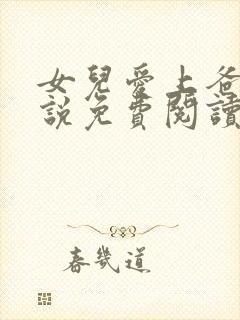 女兒愛上爸
說免費閱讀
春幾道